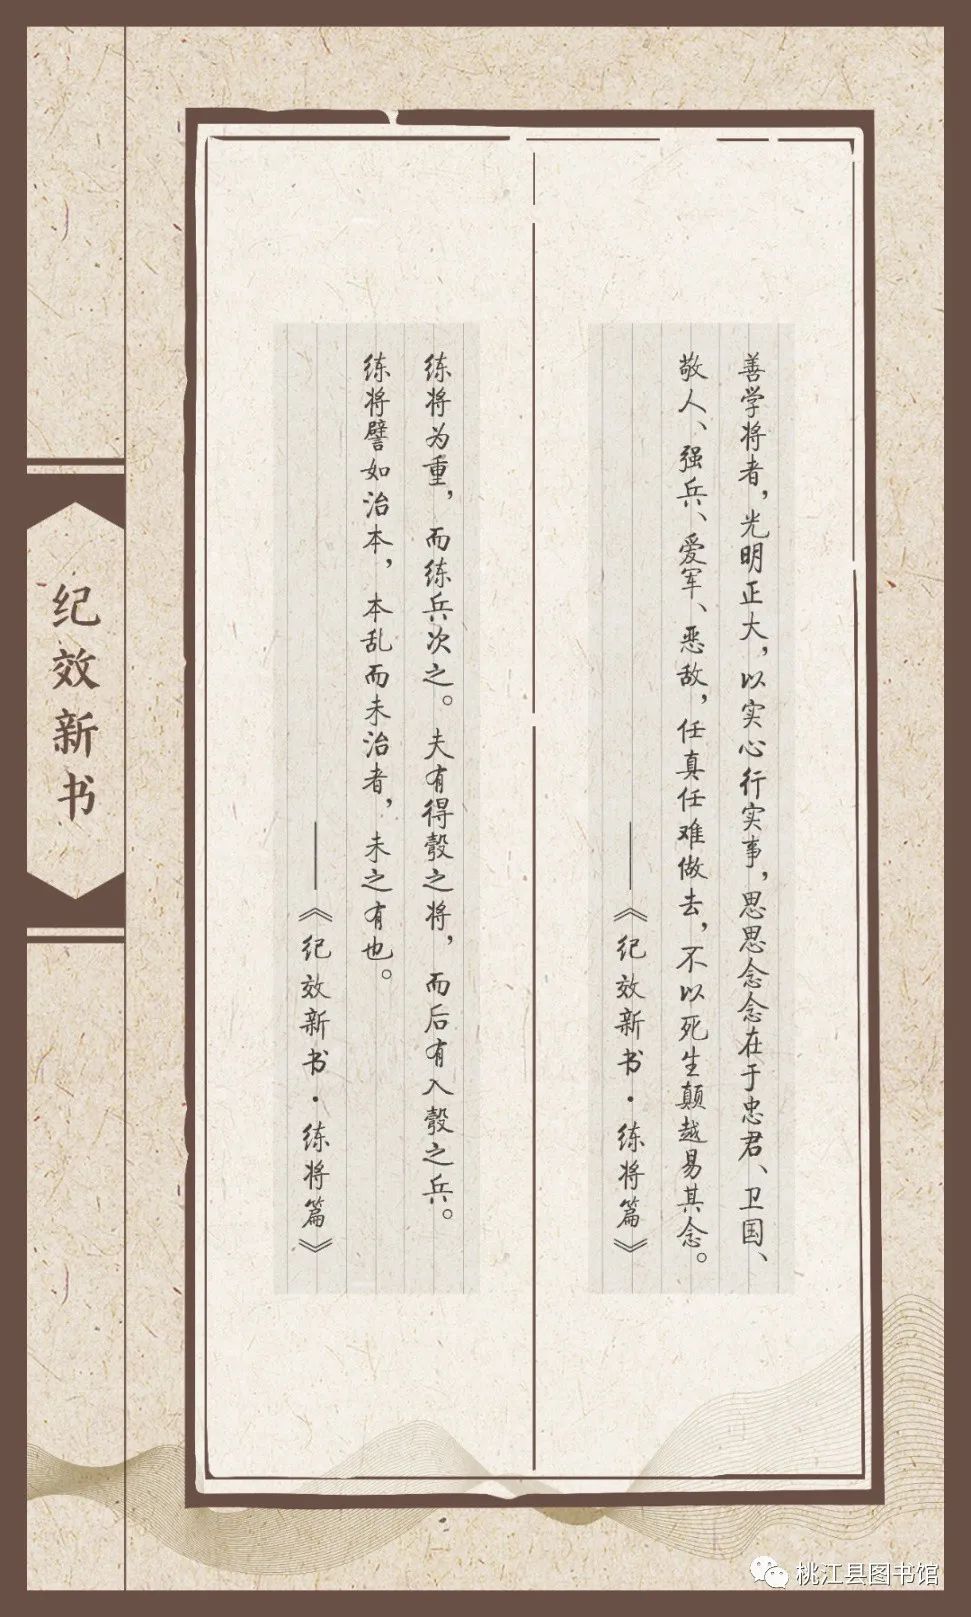 善学将者，光明正大，以实心行实事，思思念念在于忠君、卫国、
敬人、强兵、爱军、恶敌，任真任难做去，不以死生颠越易其念。
——《纪效新书·练将篇》
练将为重，而练兵次之。夫有得彀之将，而后有入彀之兵。
练将譬如治本，本乱而末治者，未之有也。
——《纪效新书·练将篇》
纪效新书
桃江县图书馆